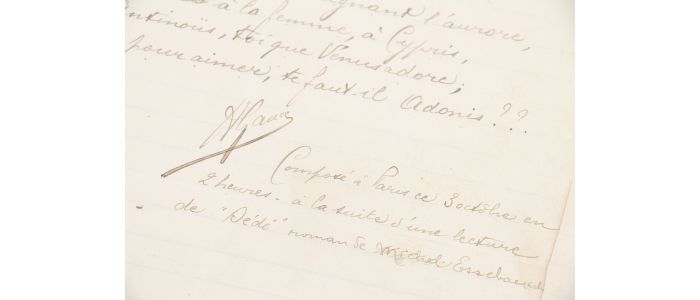 gnant l'aurore,
à la femme, à Cypris,
ntinoüs, toi que Venus adore;
pour aimer, te faut-il Adonis??..
Composé à Paris ce 3 octobre en
2 heures - à la suite d'une lecture
de "Dédé" roman de Michel Essebac